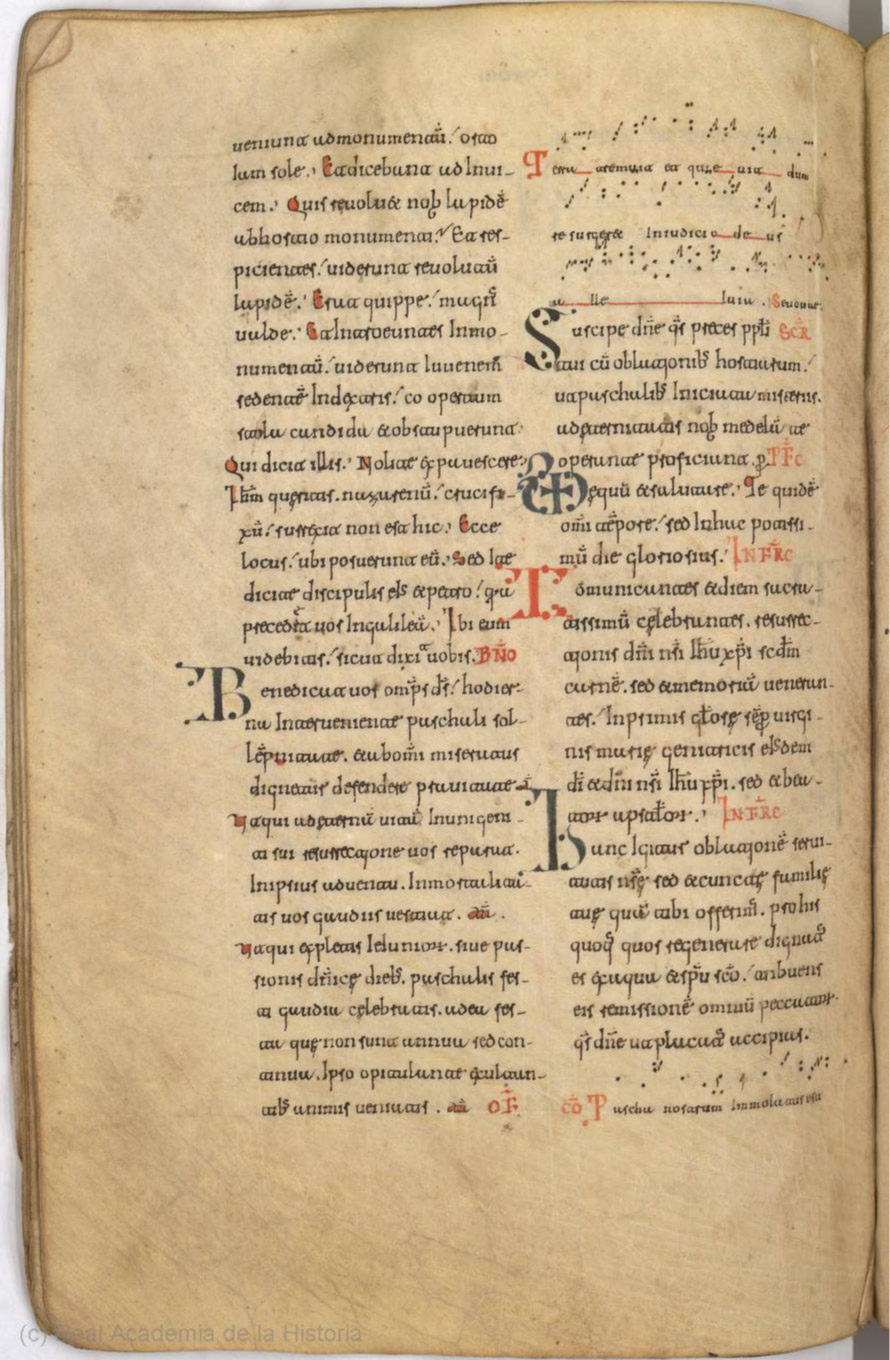 ueniunt admonumentū. orto
iam sole. Et dicebant ad Inui-
cem. Quis reuolu& nob̄ lapidē
abhostio monumenti. Et res-
picientes. uiderunt reuolutū
lapidē. Erat quippe. magn̄
ualde. Et Introeuntes Inmo-
numentū. uiderunt Iuuenem̄
sedentē Indextris. coopertum
stola candida &obstupuerunt.
Qui dicit illis. Nolite expauescere.
Ihm̄ queritis. nazarenū. crucifi-
xū. surrexit non est hic. Ecce
locus. ubi posuerunt eū. Sed Ite
dicite discipulis eIs &petro. quia
precedet uos Ingalileā. Ibi eum
uidebitis. sicut dixit uobis. BÑO
Benedicat uos omp̄s d̄s. hodier-
na Interueniente paschali sol-
lēpnitate. &abom̄i miseratus
dignetur defendere prauitate
Ut qui adęternā uitā Inunigeni-
ti sui resurrectione uos reparat.
Inipsius aduentu. Inmortalitati-
tis uos gaudiis uestiat. am̄.
Ut qui expletis Ieiuniorum. siue pas-
sionis dn̄icę dieb'. paschalis fes-
ti gaudia cęlebratis. adea fes-
ta quę non sunt annua sed con-
tinua. Ipso opitulante exultan-
tib' animis ueniatis. am̄ OF
Terra tremuit et quieuit dum
resurger& Iniudicio deus
alleluia. Secreta
Suscipe dn̄e q̄s preces pp̄li SCR
tui cū oblationib' hostiarum.
ut paschalib' Iniciata misteriis.
adęternitatis nob̄ medelā te
operante proficiant. p̄ PFC
Uere dignū equū &salutare. Te quidē
om̄i tēpore. sed Inhac potissi-
mū die gloriosius. INFRC
Comunicantes &diem sacra-
tissimū cęlebrantes. resurrec-
tionis dn̄i nr̄i ihū xp̄i scdm̄
carnē. sed &memoriā ueneran-
tes. Inprimis glōse sēp uirgi-
nis marię genitricis eIsdem
dī &dn̄i nr̄i ihū xp̄i. sed &bea-
torum apsālorum. INFRC
Hanc Igitur oblationē serui-
tutis nr̄ę sed &cunctę familię
tuę quā tibi offerim̄. pro his
quoq̄ quos regenerare dignat'
es ex aqua &sp̄u sc̄o. tribuens
eis remissionē omniū peccatorum.
q̄s dn̄e ut placat' accipias.
CŌ Pascha nostrum Immolatus est
(c) Real Academia de la Historia